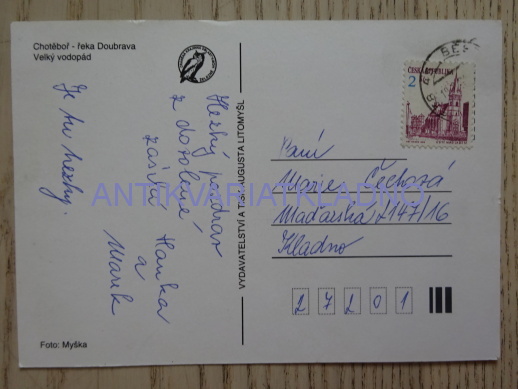 Chotěboř - řeka Doubrava
Velký vodopád
Hezký pozdrav
z dovolené
zasílá Hanka
a
Marik
Je tu hezky.
VYDAVATELSTVÍ A TISK AUGUSTA LITOMYŠL
ČESKÁ REPUBLIKA
2
Paní
Marie Čechová
Maďarská 2147/16
Kladno
27201
Foto: Myška
ANTIKVARIATKLADNO